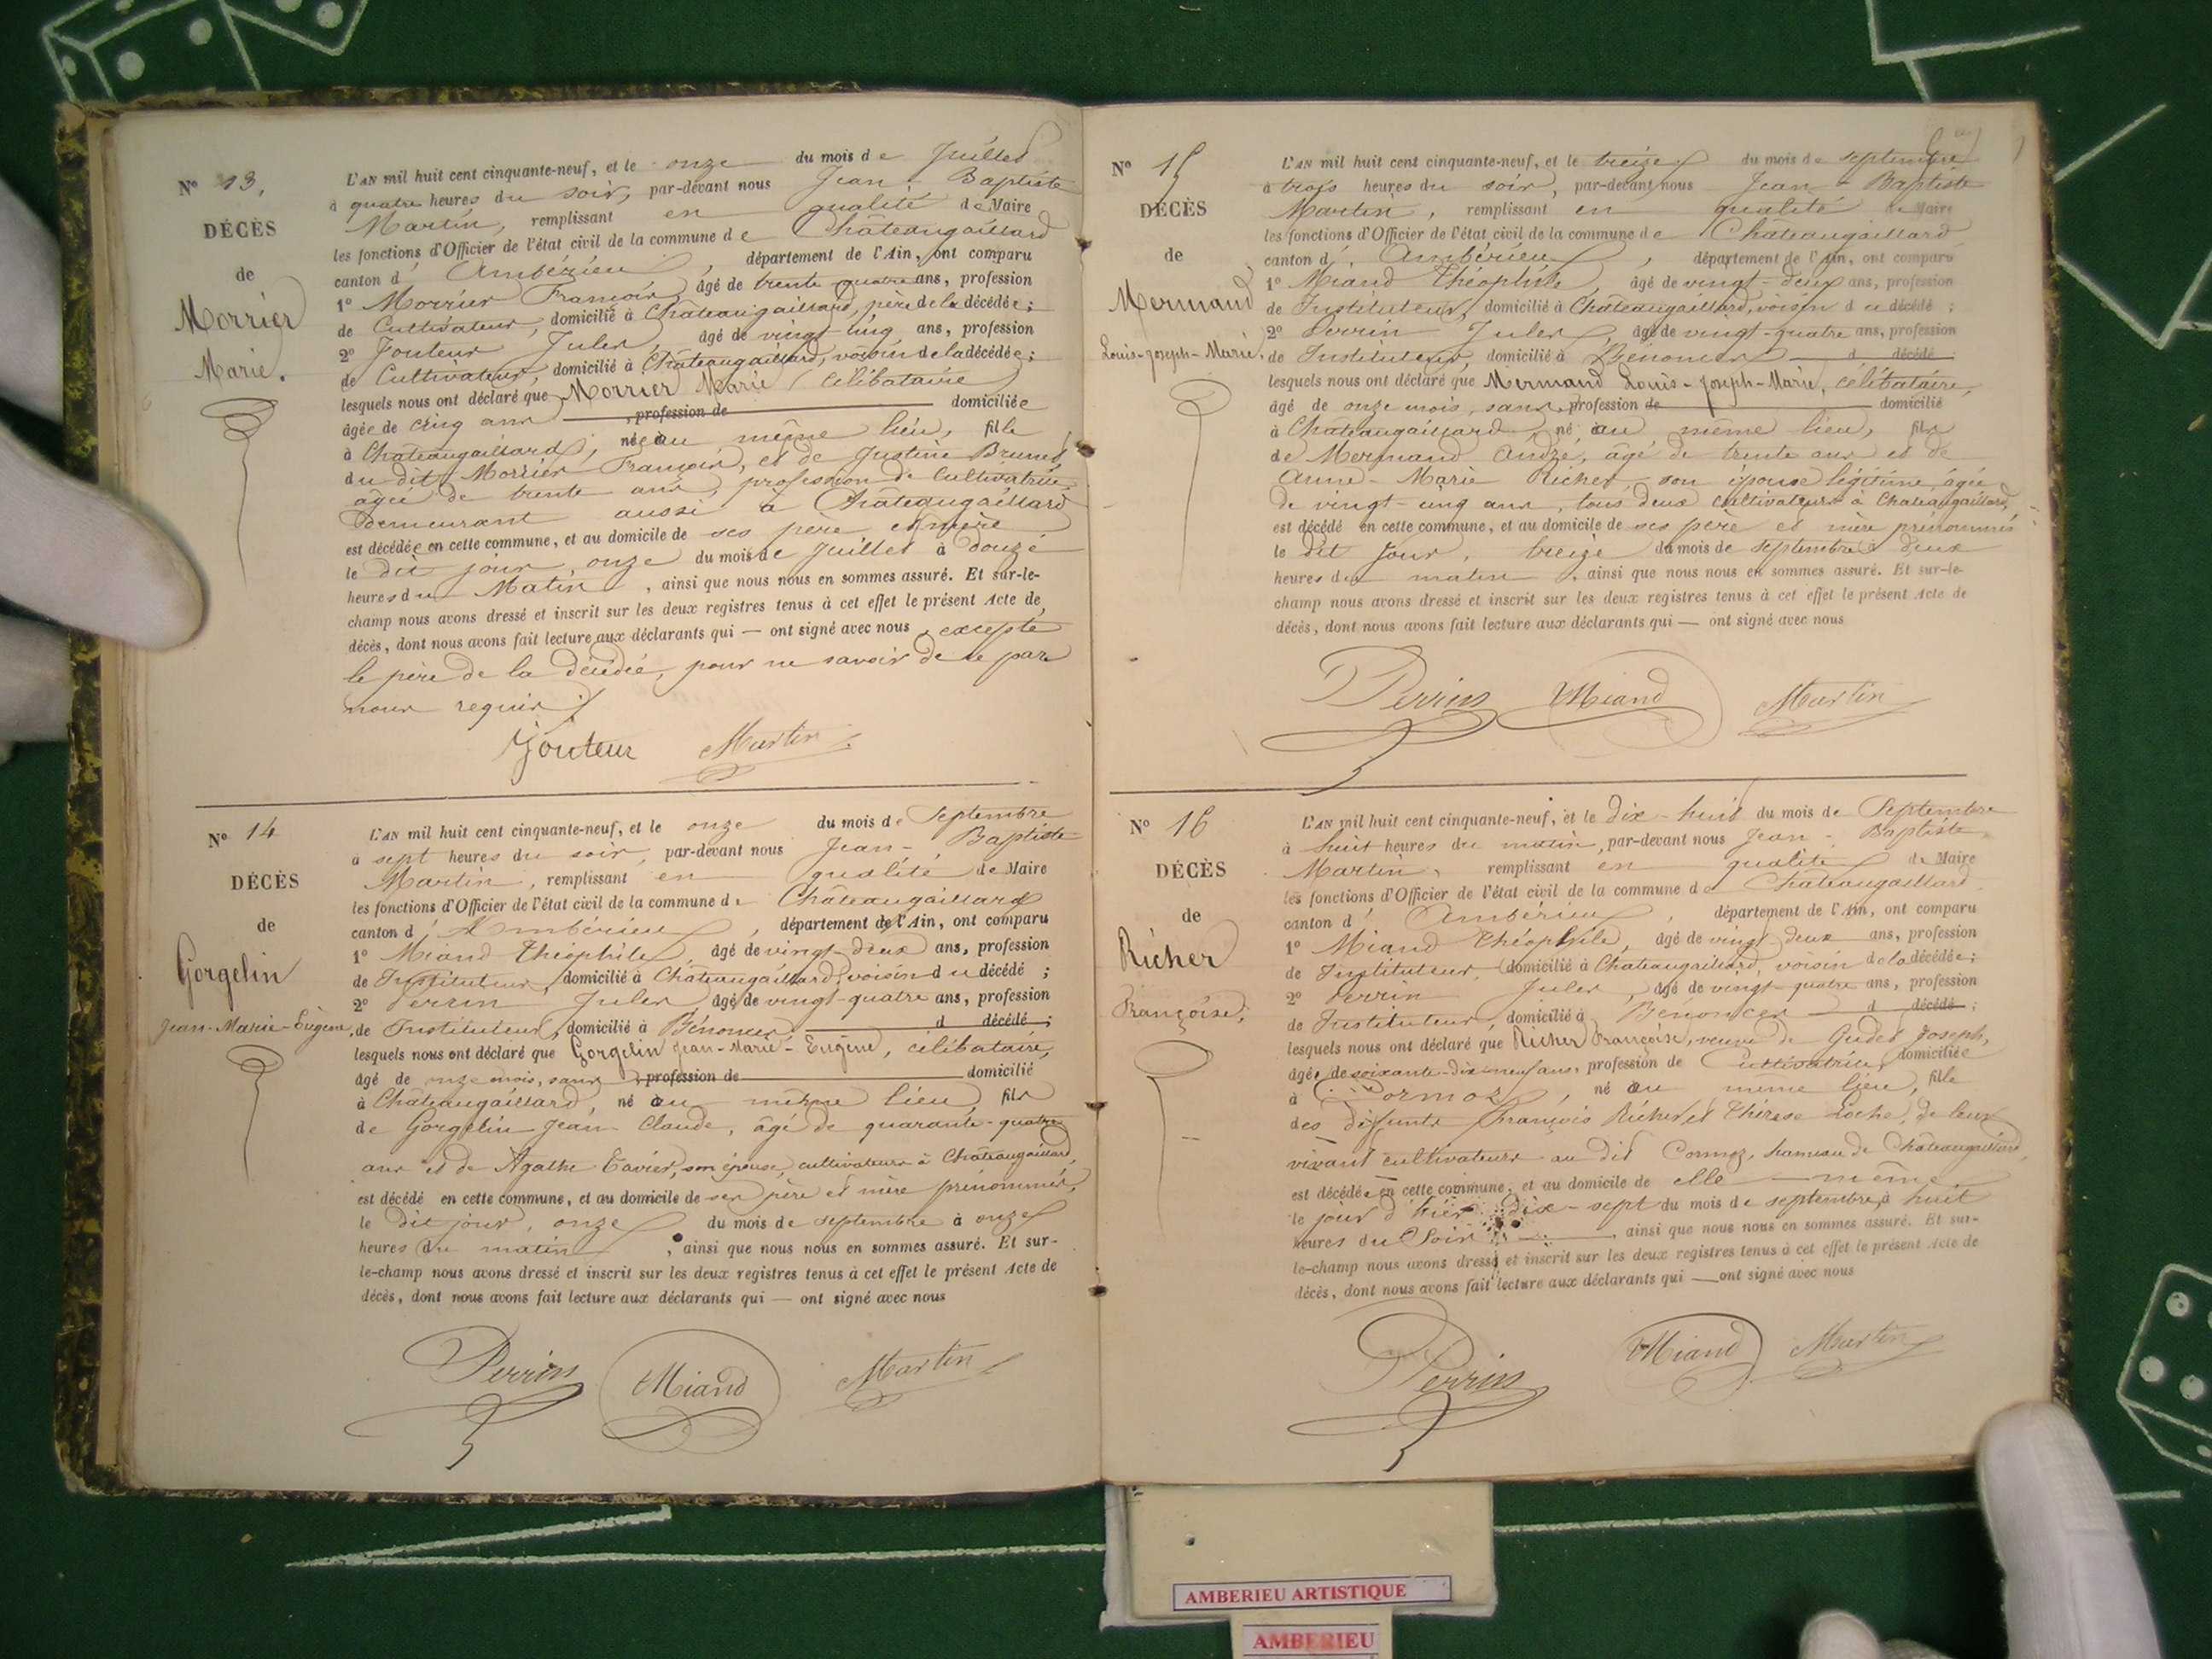 N° 13.
DÉCÈS
de
Morrier
Marie.
L'AN mil huit cent cinquante-neuf, et le onze du mois de Juillet
à quatre heures du soir, par-devant nous Jean-Baptiste
Martin, remplissant en qualité de Maire
les fonctions d'Officier de l'état civil de la commune de Châteaugaillard
canton d'Ambérieu, département de l'Ain, ont comparu
1° Morrier François, âgé de trente-quatre ans, profession
de Cultivateur, domicilié à Châteaugaillard, père de la décédée;
2° Jouteur Jules, âgé de vingt-cinq ans, profession
de Cultivateur, domicilié à Châteaugaillard, voisin de la décédée;
lesquels nous ont déclaré que Morrier Marie, célibataire
âgée de cinq ans, profession de domiciliée
à Châteaugaillard, née au même lieu, fille
du dit Morrier François, et de Justine Brunet,
âgée de trente ans, profession de Cultivatrice
demeurant aussi à Châteaugaillard
est décédée en cette commune, et au domicile de ses père et mère
le dit jour, onze du mois de Juillet à douze
heures du Matin, ainsi que nous nous en sommes assuré. Et sur-le-
champ nous avons dressé et inscrit sur les deux registres tenus à cet effet le présent Acte de
décès, dont nous avons fait lecture aux déclarants qui — ont signé avec nous, excepté
le père de la décédée, pour ne savoir de ce par
nous requis
Jouteur Martin
N° 14
DÉCÈS
de
Gorgelin
Jean-Marie-Eugène,
L'AN mil huit cent cinquante-neuf, et le onze du mois de Septembre
à sept heures du soir, par-devant nous Jean-Baptiste
Martin, remplissant en qualité de Maire
les fonctions d'Officier de l'état civil de la commune de Châteaugaillard
canton d'Ambérieu, département de l'Ain, ont comparu
1° Miand Théophile, âgé de vingt-deux ans, profession
de Instituteur, domicilié à Châteaugaillard, voisin du décédé;
2° Perrin Jules, âgé de vingt-quatre ans, profession
de Instituteur, domicilié à Bénonces, d décédé;
lesquels nous ont déclaré que Gorgelin Jean-Marie-Eugène, célibataire,
âgé de onze mois, sans profession de domicilié
à Châteaugaillard, né au même lieu, fils
de Gorgelin Jean-Claude, âgé de quarante-quatre
ans et de Agathe Tavier, son épouse, cultivateurs à Châteaugaillard,
est décédé en cette commune, et au domicile de ses père et mère prénommés,
le dit jour, onze du mois de septembre à onze
heures du matin, ainsi que nous nous en sommes assuré. Et sur-
le-champ nous avons dressé et inscrit sur les deux registres tenus à cet effet le présent Acte de
décès, dont nous avons fait lecture aux déclarants qui — ont signé avec nous
Perrin Miand Martin
N° 15
DÉCÈS
de
Mermand
Louis-Joseph-Marie.
L'AN mil huit cent cinquante-neuf, et le treize du mois de septembre
à trois heures du soir, par-devant nous Jean-Baptiste
Martin, remplissant en qualité de Maire
les fonctions d'Officier de l'état civil de la commune de Châteaugaillard
canton d'Ambérieu, département de l'Ain, ont comparu
1° Miand Théophile, âgé de vingt-deux ans, profession
de Instituteur, domicilié à Châteaugaillard, voisin du décédé;
2° Perrin Jules, âgé de vingt-quatre ans, profession
de Instituteur, domicilié à Bénonces d décédé
lesquels nous ont déclaré que Mermand Louis-Joseph-Marie, célibataire,
âgé de onze mois, sans profession de domicilié
à Châteaugaillard, né au même lieu, fils
de Mermand André, âgé de trente ans et de
Anne-Marie Richer, son épouse légitime âgée
de vingt-cinq ans, tous deux cultivateurs à Châteaugaillard,
est décédé en cette commune, et au domicile de ses père et mère prénommés
le dit jour, treize du mois de septembre à deux
heures du matin, ainsi que nous nous en sommes assuré. Et sur-le-
champ nous avons dressé et inscrit sur les deux registres tenus à cet effet le présent Acte de
décès, dont nous avons fait lecture aux déclarants qui — ont signé avec nous
Perrin Miand Martin
N° 16
DÉCÈS
de
Richer
Françoise;
L'AN mil huit cent cinquante-neuf, et le Dix-huit du mois de Septembre
à huit heures du matin, par-devant nous Jean-Baptiste
Martin, remplissant en qualité de Maire
les fonctions d'Officier de l'état civil de la commune de Châteaugaillard
canton d'Ambérieu, département de l'Ain, ont comparu
1° Miand Théophile, âgé de vingt-deux ans, profession
de Instituteur, domicilié à Châteaugaillard, voisin de la décédée;
2° Perrin Jules, âgé de vingt-quatre ans, profession
de Instituteur, domicilié à Bénonces d décédé;
lesquels nous ont déclaré que Richer Françoise, veuve de Gudet Joseph,
âgée de soixante-dix-neuf ans, profession de Cultivatrice, domiciliée
à Cormoz, né au même lieu, fille
des défunts François Richer et Thérèse Loche, de leur
vivant cultivateurs au dit Cormoz, hameau de Châteaugaillard
est décédée en cette commune, et au domicile de elle-même
le jour d'hier dix-sept du mois de septembre, à huit
heures du Soir, ainsi que nous nous en sommes assuré. Et sur-
le-champ nous avons dressé et inscrit sur les deux registres tenus à cet effet le présent Acte de
décès, dont nous avons fait lecture aux déclarants qui — ont signé avec nous
Perrin Miand Martin
AMBERIEU ARTISTIQUE
AMBERIEU